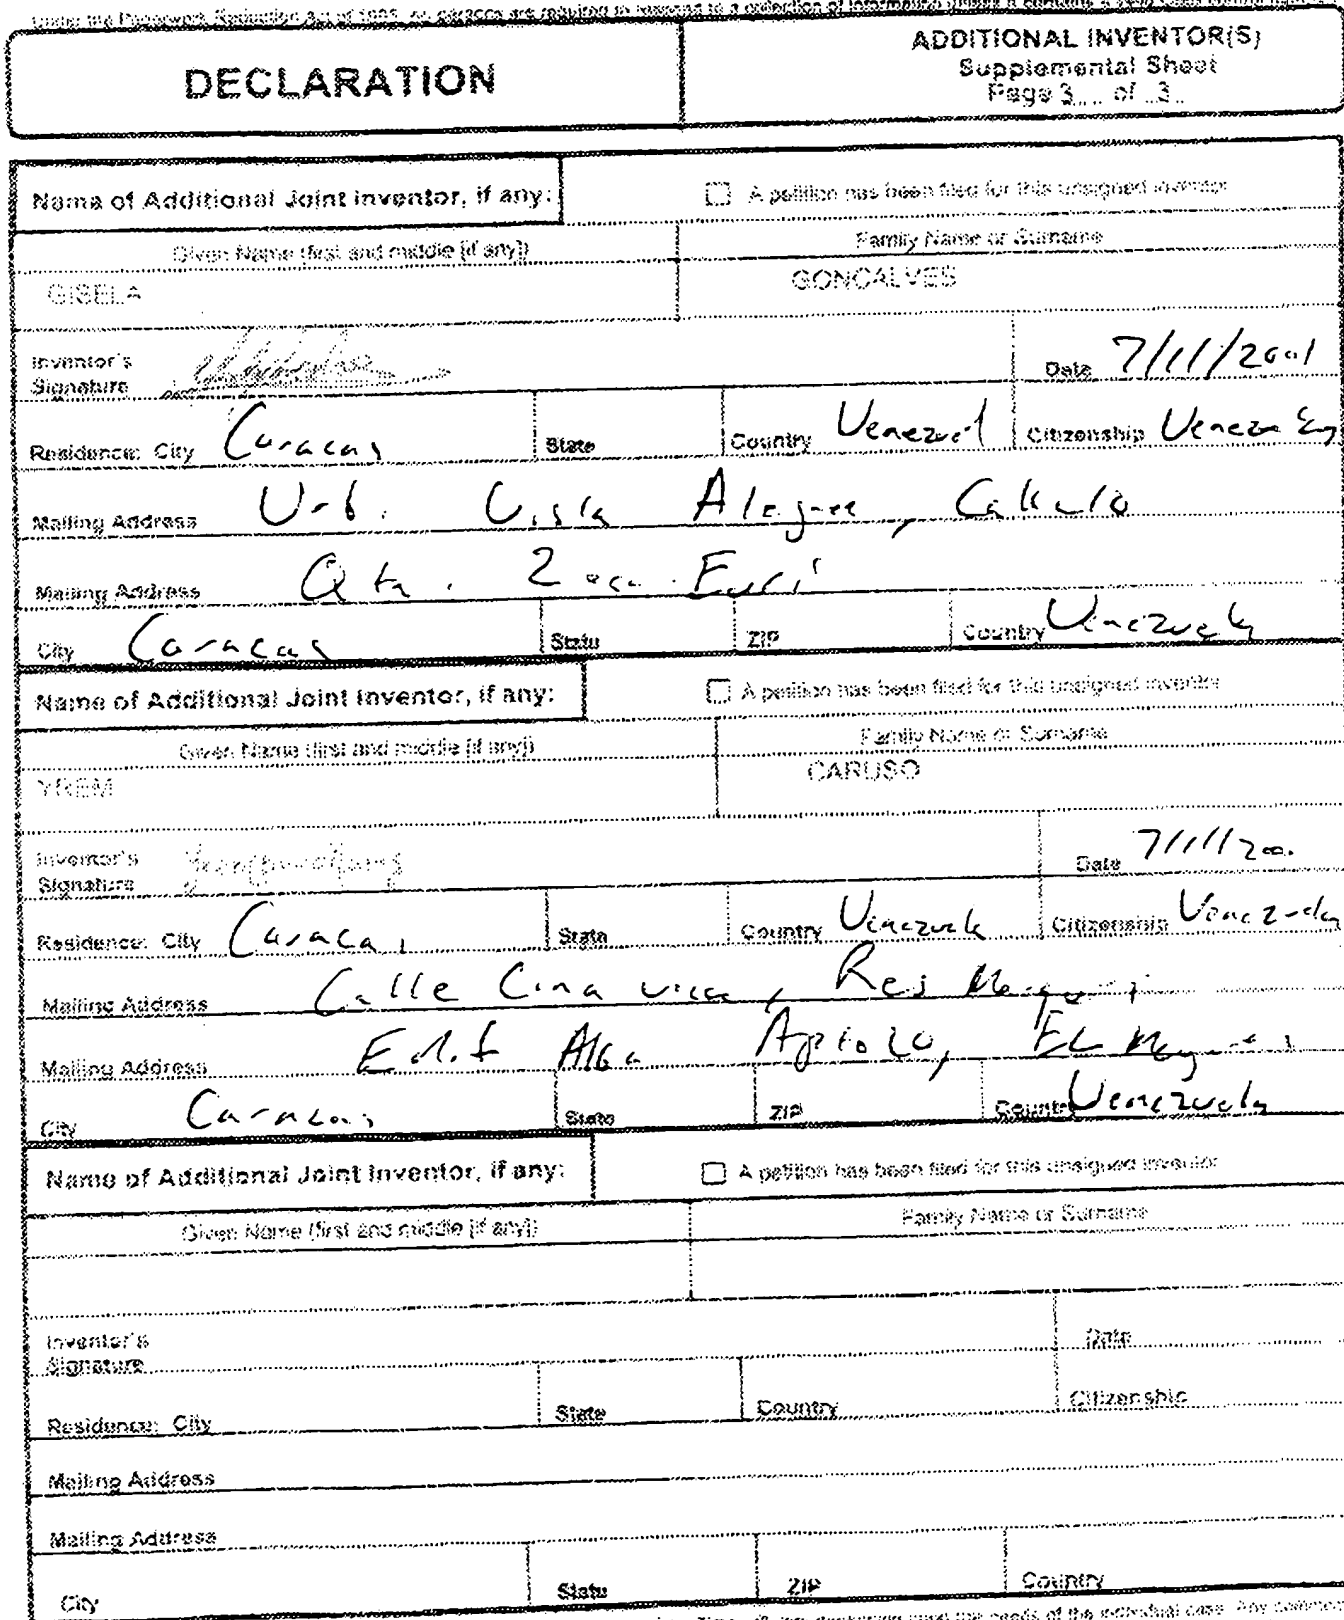 Under the Paperwork Reduction Act of 1995, no persons are required to respond to a collection of information unless it contains a valid OMB control
DECLARATION
ADDITIONAL INVENTOR(S)
Supplemental Sheet
Page 3 of 3
Name of Additional Joint Inventor, if any:
A petition has been filed for this unsigned inventor
Given Name (first and middle [if any])
Family Name or Surname
GISELA
GONCALVES
Inventor's
Signature
Date 7/11/2001
Residence: City Caracas State Country Venezuel Citizenship
Mailing Address Urb. Vista Alegre,
Mailing Address Qta.
City Caracas State ZIP Country Venezuela
Name of Additional Joint Inventor, if any:
A petition has been filed for this unsigned inventor
Given Name (first and middle [if any])
Family Name or Surname
YREM
CARUSO
Inventor's
Signature
Date
Residence: City Caracas State Country Venezuela Citizenship
Mailing Address Calle
Mailing Address Edif Alba
City Caracas State ZIP Country Venezuela
Name of Additional Joint Inventor, if any:
A petition has been filed for this unsigned inventor
Given Name (first and middle [if any])
Family Name or Surname
Inventor's
Signature
Date
Residence: City State Country Citizenship
Mailing Address
Mailing Address
City State ZIP Country
the needs of the individual case. Any comments